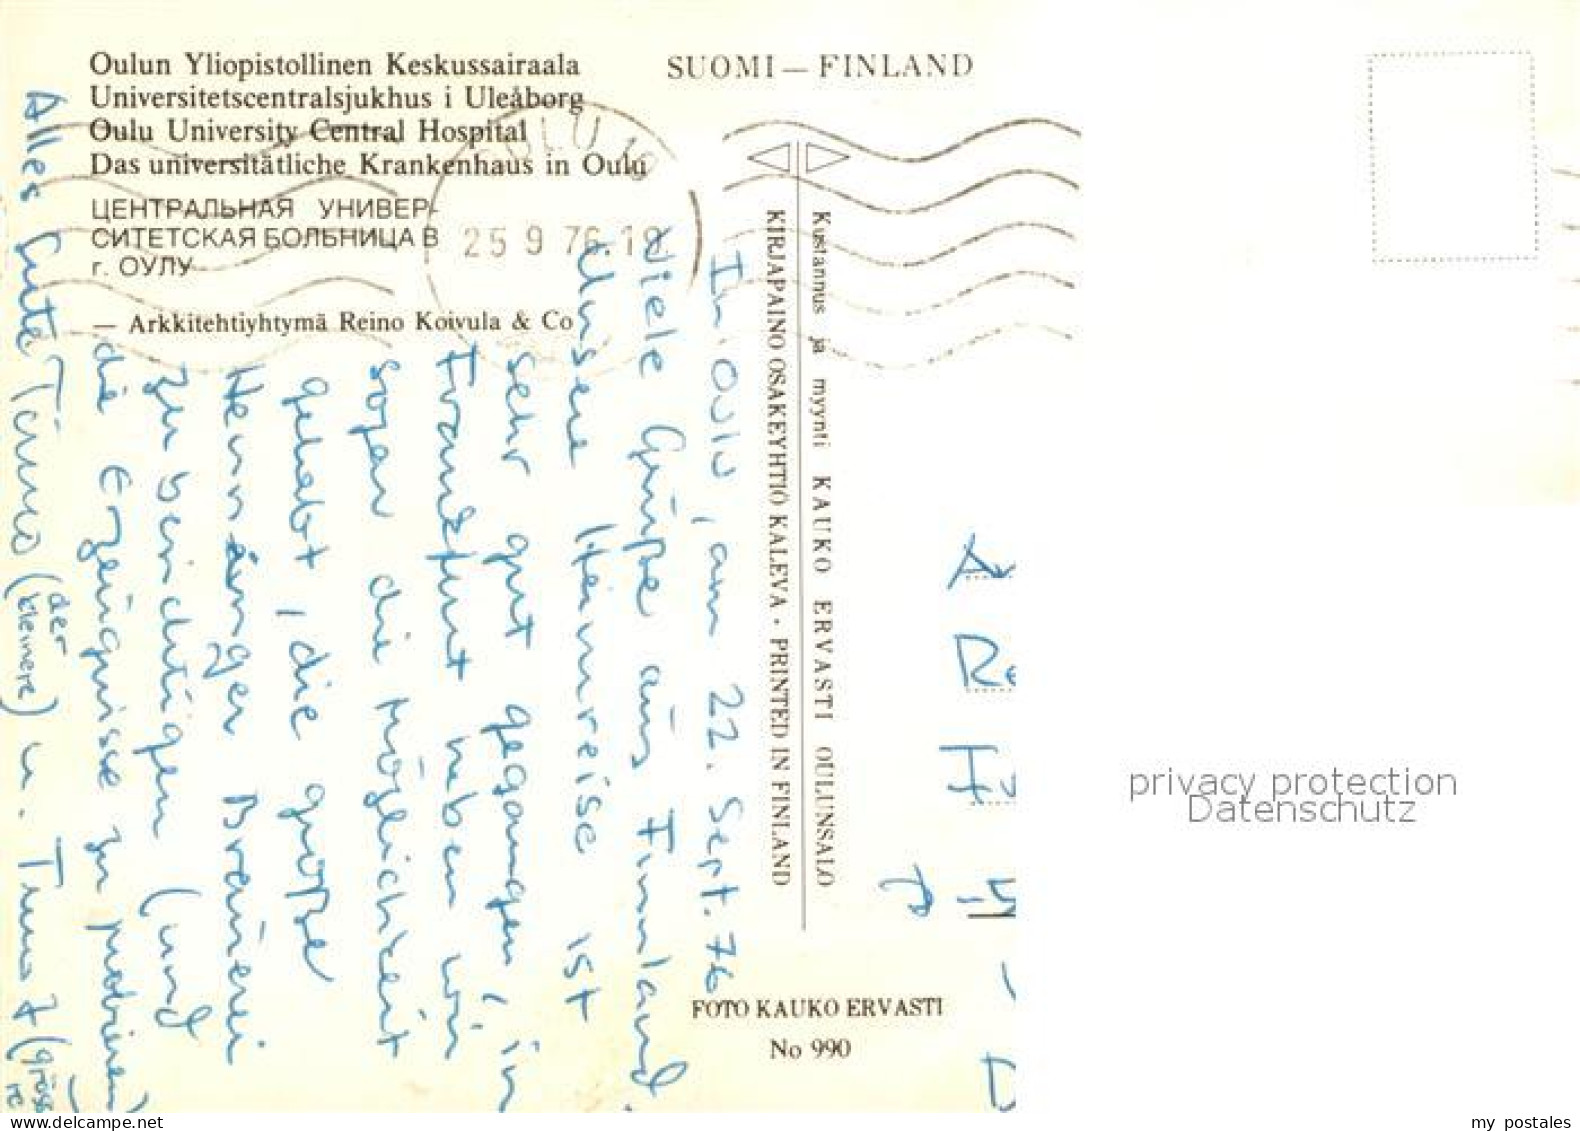 Oulun Yliopistollinen Keskussairaala
Universitetscentralsjukhus i Uleåborg
Oulu University Central Hospital
Das universitätliche Krankenhaus in Oulu
ЦЕНТРАЛЬНАЯ УНИВЕР-
СИТЕТСКАЯ БОЛЬНИЦА В
г. ОУЛУ
— Arkkitehtiyhtymä Reino Koivula & Co
SUOMI — FINLAND
OULU 10
25 9 76-19
Kustannus ja myynti KAUKO ERVASTI OULUNSALO
KIRJAPAINO OSAKEYHTIÖ KALEVA · PRINTED IN FINLAND
In Oulu, am 22. Sept. 76
Viele Grüße aus Finnland.
Unsere Heimreise ist
sehr gut gegangen, in
Frankfurt haben wir
sogar die Möglichkeit
gehabt, die große
Henninger Brauerei
zu besichtigen (und
die Erzeugnisse zu probieren)
Alles Gute Timo (der kleinere) u. Timo (grössere)
FOTO KAUKO ERVASTI
No 990
privacy protection
Datenschutz
www.delcampe.net
my postales